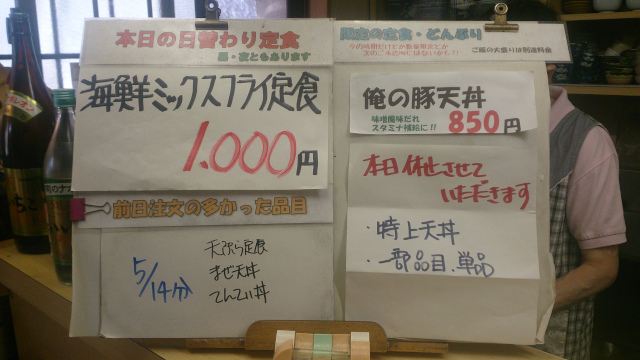 本日の日替わり定食
昼・夜ともあります
海鮮ミックスフライ定食
1.000円
前日注文の多かった品目
5/14分
天ぷら定食
まぜ天丼
てんてい丼
限定の定食・どんぶり
ご飯の大盛りは別途料金
俺の豚天丼
味噌風味だれ
スタミナ補給に!! 850円
本日休止させて
いただきます
・特上天丼
・一部品目.単品